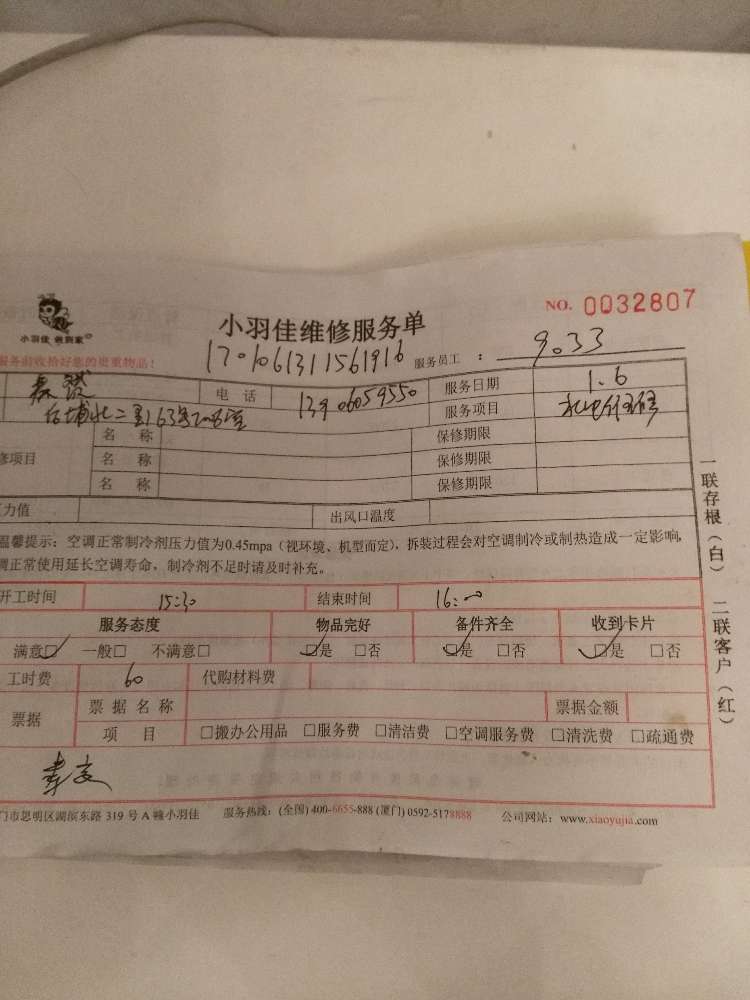 NO. 0032807
小羽佳 教到家
小羽佳维修服务单
服务前收拾好您的贵重物品！
17010613111561916 服务员工：9033
电话 13906059550 服务日期 1.6
后埔北二里163号 服务项目
名称 保修期限
修项目 名称 保修期限
名称 保修期限
力值 出风口温度
温馨提示：空调正常制冷剂压力值为0.45mpa（视环境、机型而定），拆装过程会对空调制冷或制热造成一定影响，
调正常使用延长空调寿命，制冷剂不足时请及时补充。
开工时间 15:30 结束时间 16:00
服务态度 物品完好 备件齐全 收到卡片
满意☑ 一般□ 不满意□ ☑是 □否 ☑是 □否 ☑是 □否
工时费 60 代购材料费
票据 票据名称 票据金额
项目 □搬办公用品 □服务费 □清洁费 □空调服务费 □清洗费 □疏通费
门市思明区湖滨东路 319 号 A 幢小羽佳 服务热线：(全国) 400-6655-888 (厦门) 0592-5178888 公司网站：www.xiaoyujia.com
一联存根（白） 二联客户（红）